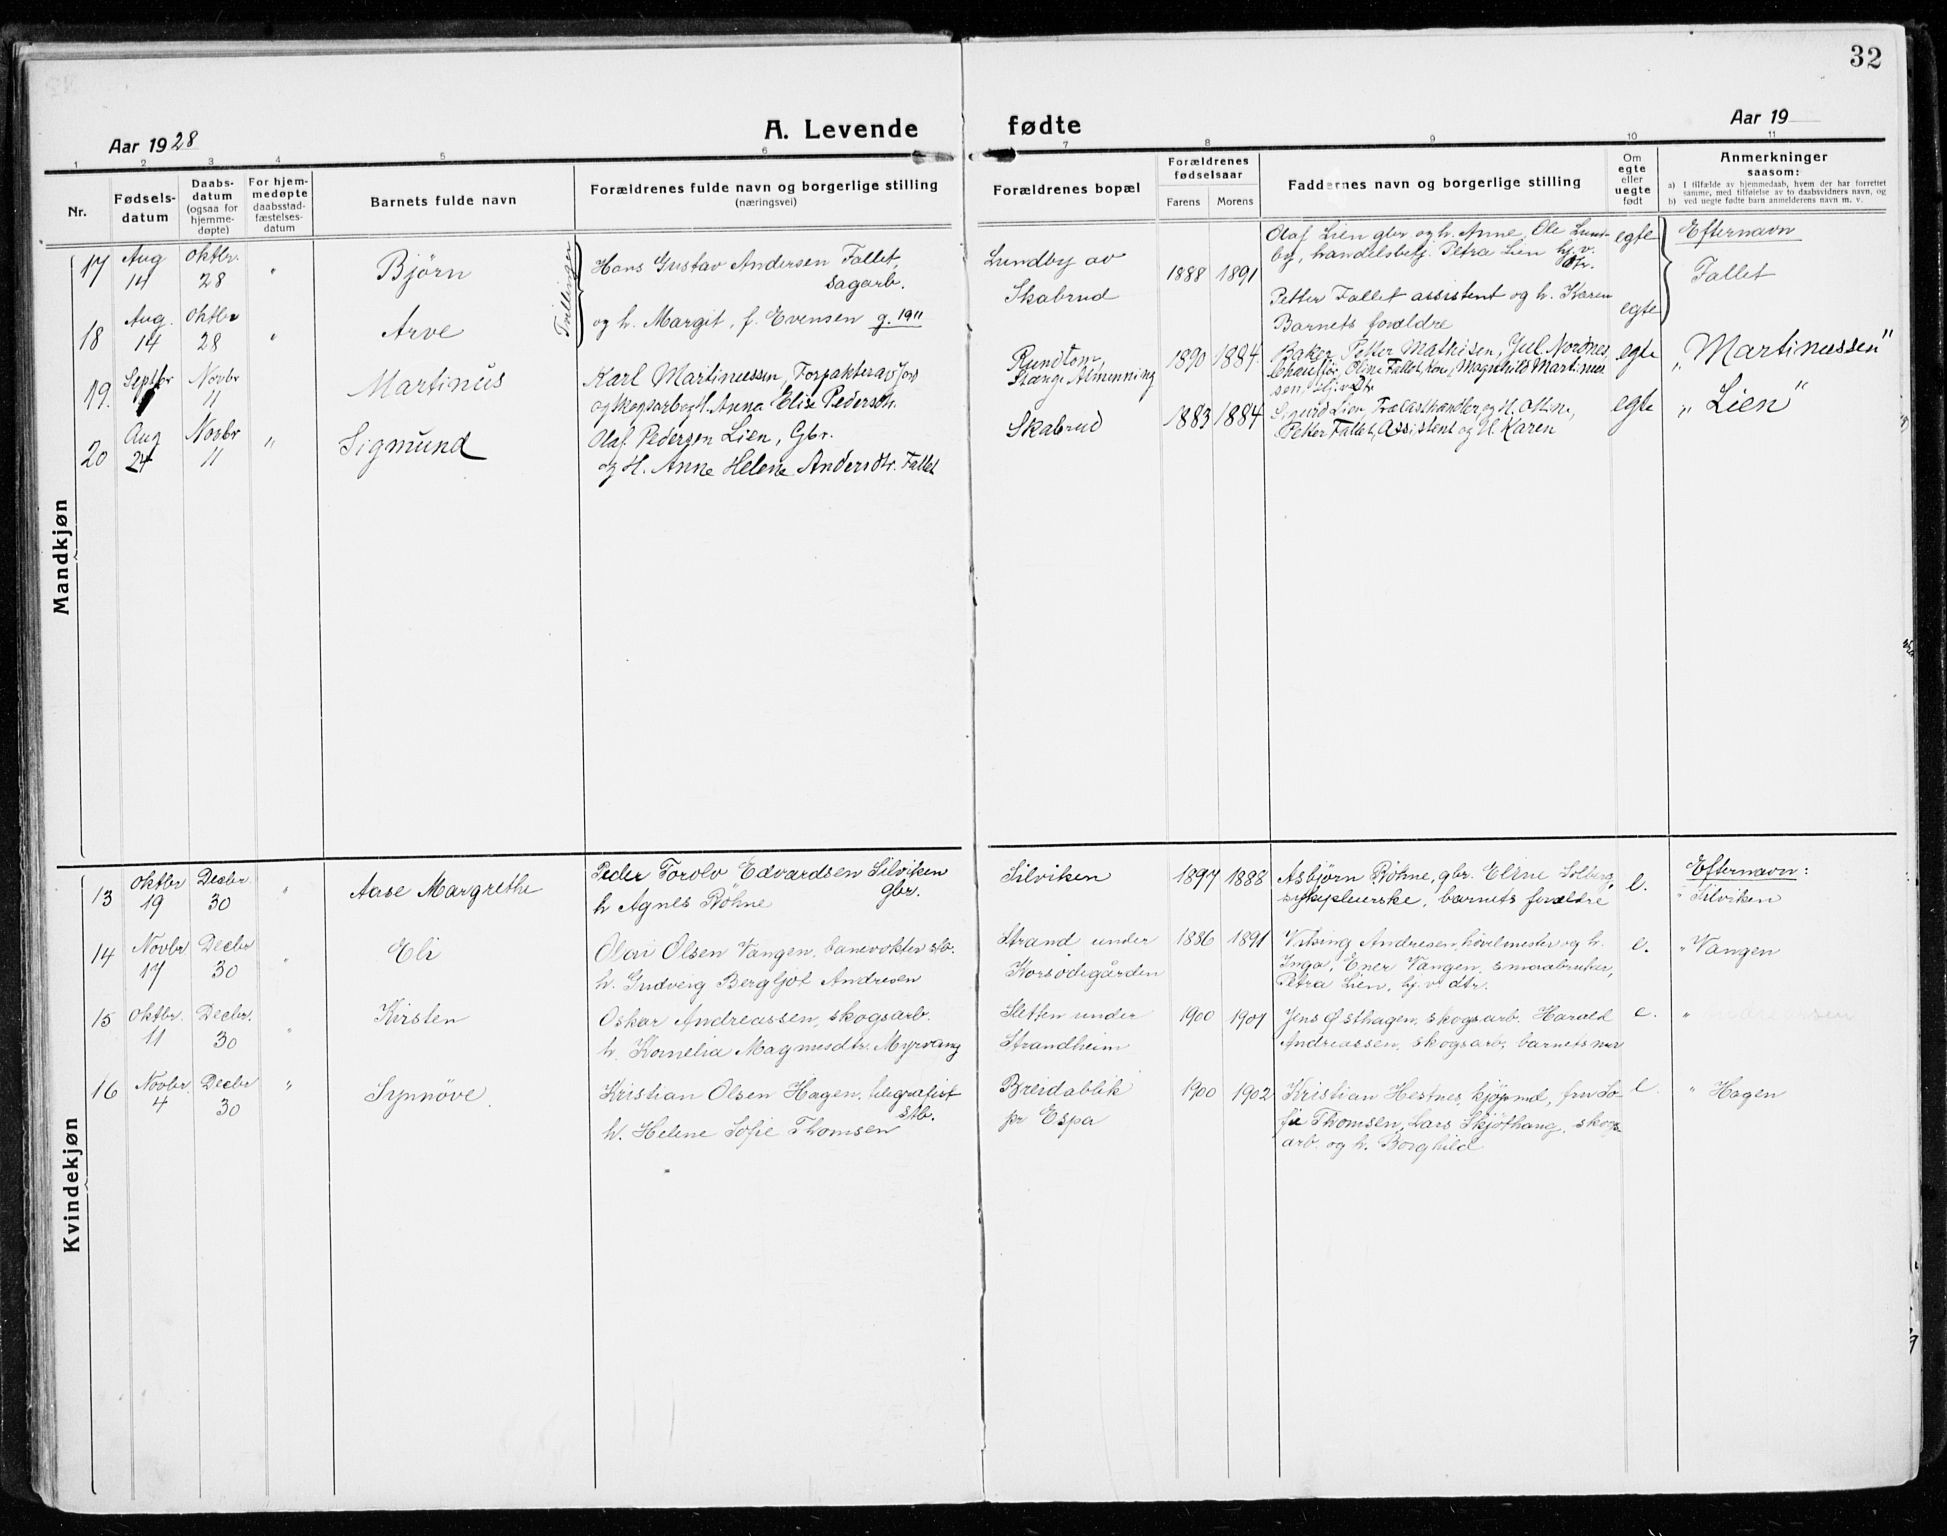 32
Aar 1928
A. Levende
fødte
Aar 19
1 2 3 4 5 6 7 8 9 10 11
Nr.
Fødsels-
datum
Daabs-
datum
(ogsaa for
hjemme-
døpte)
For hjem-
medøpte
daabsstad-
fæstelses-
datum
Barnets fulde navn
Forældrenes fulde navn og borgerlige stilling
(næringsvei)
Forældrenes bopæl
Forældrenes
fødselsaar
Farens Morens
Faddernes navn og borgerlige stilling
Om
egte
eller
uegte
født
Anmerkninger
saasom:
a) I tilfælde av hjemmedaab, hvem der har forrettet
samme, med tilføielse av to daabsvidners navn, og
b) ved uegte fødte barn anmelderens navn m. v.
Mandkjøn
17 Aug 14 Oktbr. 28 " Bjørn
Tvillinger
Hans Gustav Andersen Fallet,
sagarb.
og h. Margit, f. Evensen g. 1911
Lundby av
Skabrud
1888 1891
Olaf Lien gbr og h. Anne, Ole Lund-
by, handelsbetj. Petra Lien hj. v.
dtr.
egte
Efternavn
Fallet
18 Aug. 14 Oktbr 28 " Arve
Petter Fallet assistent og h. Karen
Barnets forældre
egte
19. Septbr Novbr 11 Martinus
Karl Martinussen, Forpakter av jord
og skogsarb og H. Anna Elise Pedersen.
Rundtom,
Stange Almenning
1890 1884
Baker Petter Mathisen, Jul. Nordnes,
Chauffør, Oline Fallet, Kone, Magnhild Martinus-
sen hj. v. Dtr
egte
"Martinussen"
20 Aug 24 Novbr 11 " Sigmund
Olaf Pedersen Lien, Gbr.
og H. Anne Helene Andersdtr. Fallet
Skabrud
1883 1884
Sigurd Lien, Trælasthandler, og H.
Petter Fallet, Assistent og H. Karen
egte
"Lien"
Kvindekjøn
13 Oktbr 19 Decbr. 30 " Aase Margrethe
Peder Torolv Edvardsen Silviken
gbr.
h Agnes Böhne
Silviken
1897 1888
Asbjørn Böhne, gbr. Eline Solberg,
sykepleierske, barnets forældre
e.
Efternavn:
" Silviken
14 Novbr 17 Decbr 30 " Eli
Olav Olsen Vangen, banevokter stb.
h. Gudveig Bergljot Andresen
Strand under
Korsödegården
1886 1891
Andresen, høvelmester og h.
Inga, Ener Vangen, smaabruker,
Petra Lien, hj. v. dtr.
e.
" Vangen
15 Oktbr. 11 Decbr. 30 " Kirsten
Oskar Andreassen, skogsarb.
h. Kornelia Magnusdtr. Myrvang
Sletten under
Strandheim
1900 1901
Jens Østhagen, skogsarb. Harald
Andreassen, skogsarb, barnets mor
e.
" Andreassen
16 Novbr. 4 Decbr 30 " Synnöve
Kristian Olsen Hagen, telegrafist
stb.
h. Helene Sofie Thomsen
Breidablik
pr Espa
1900 1902
Kristian Hestnes, kjøpmd, fru So-
fie Thomsen, Lars Skjöthaug, skogs-
arb. og h. Borghild
e.
" Hagen